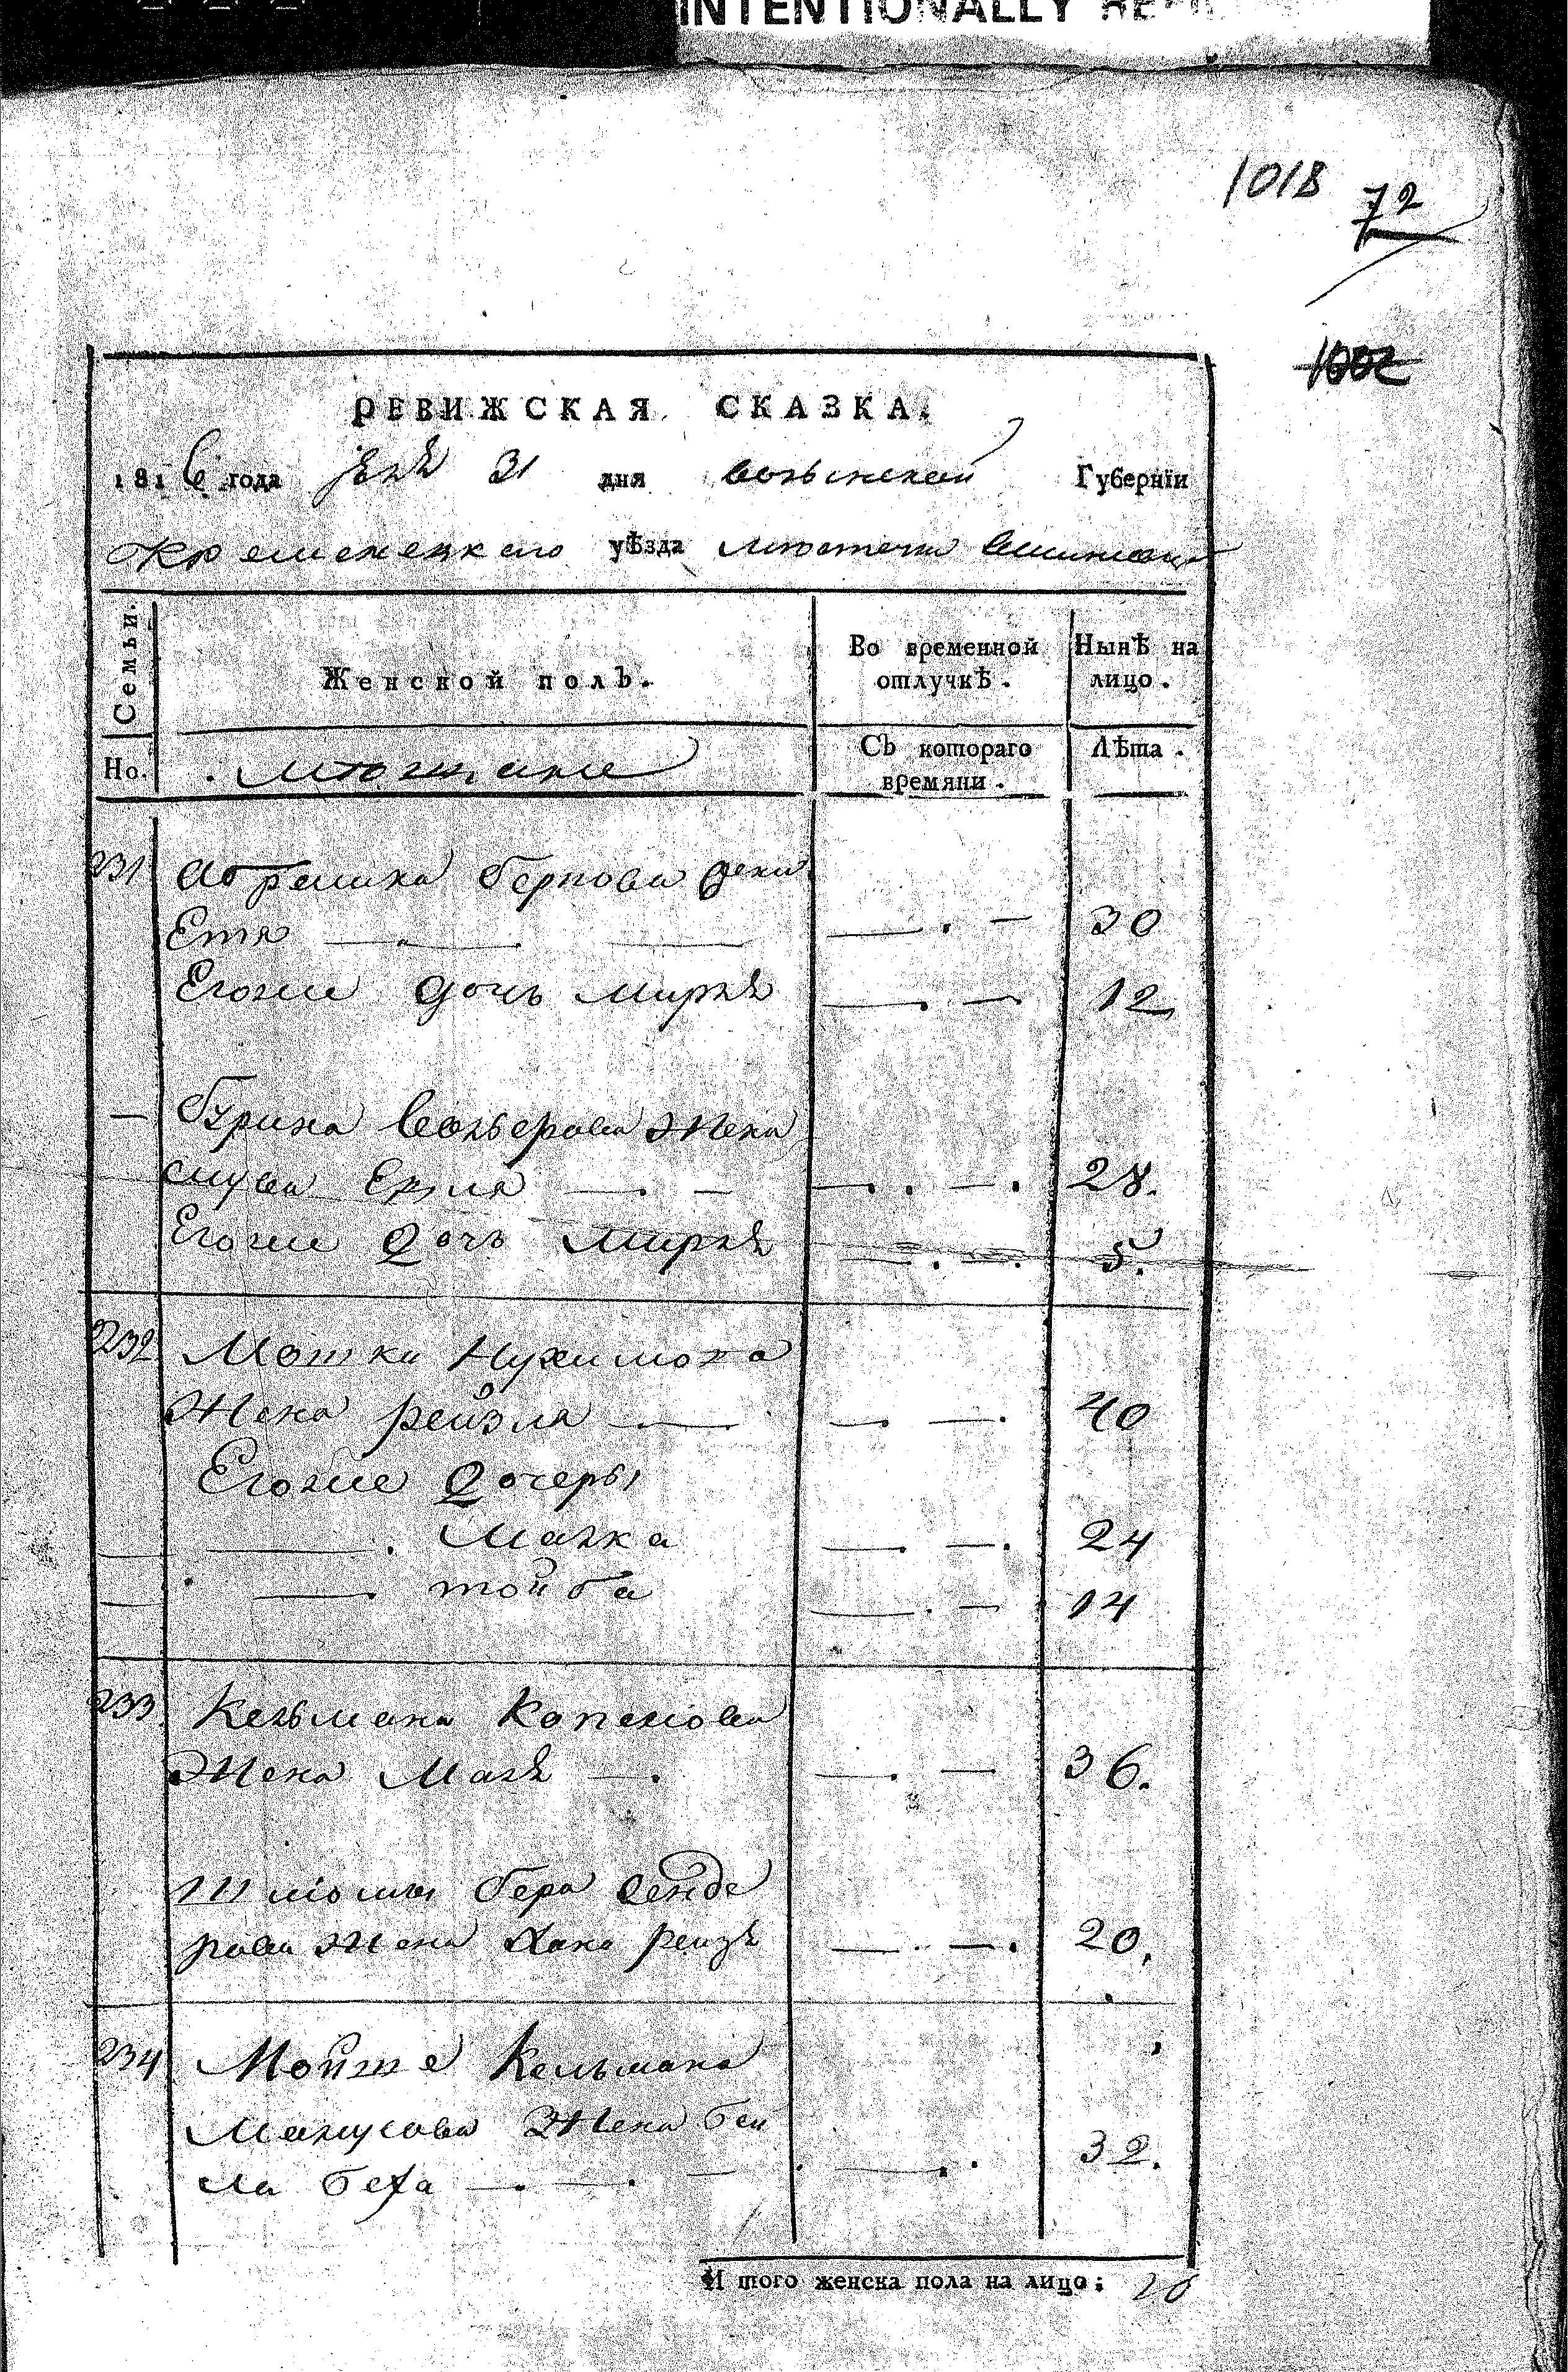 INTENTIONALLY
1018
72
1002
РЕВИЖСКАЯ СКАЗКА.
1816 года 31 дня волынской Губернїи
Кременецкаго уѣзда местечка
Семьи.
Женской полъ.
Во временной отлучкѣ.
Нынѣ на лицо.
Но.
Съ котораго времяни.
Лѣта.
231 Абрамка Беркова жена
Етя 30
Егоже дочь Мирля 12
Жена
28.
Егоже дочь Мирля 5.
232 Мошки Нухимова
Жена рейзля 40
Егоже дочеры
Малка 24
тойба 14
233 Кельмана
Жена Маля 36.
Шліомы бера Сенде
рова Жена Хана рейзя 20.
234 Мойше Кельмана
Манусова Жена бей
ла беха 32.
И того женска пола на лицо: